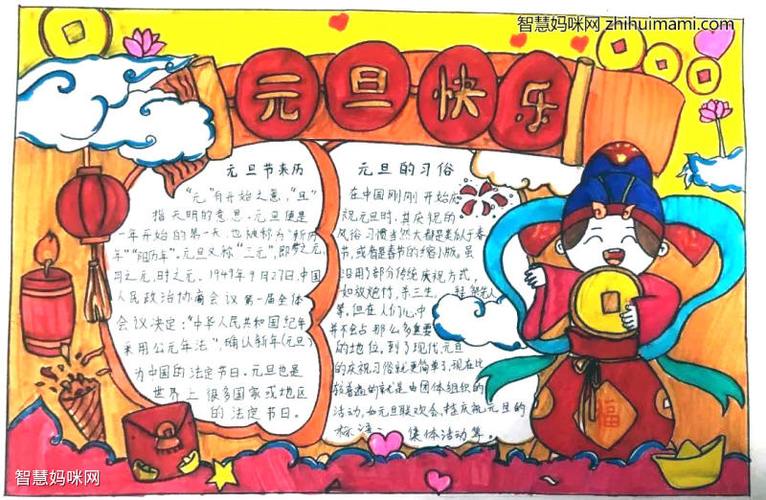 智慧妈咪网 zhihuimami.com
元旦快乐
元旦节来历
"元"有开始之意,"旦"
指天明的意思。元旦便是
一年开始的第一天,也被称为"新历
年""阳历年"。元旦又称"三元",即岁之元、
月之元、时之元。1949年9月27日,中国
人民政治协商会议第一届全体
会议决定:"中华人民共和国纪年
采用公元年法",确认新年(元旦)
为中国的法定节日。元旦也是
世界上很多国家或地区
的法定节日。
元旦的习俗
在中国刚刚开始庆
祝元旦时,其庆祝的
风俗习惯当然大都是类似于春
节,或者是春节的缩小版。虽
沿用了部分传统庆祝方式,
如放炮竹、杀三生、
等,但在人们心中
并不会占那么多重要
的地位,到了现代,元旦
的庆祝习俗就更简单了,现在比
较普遍的就是由团体组织的
活动,如元旦联欢会、挂庆祝元旦的
标语、集体活动等。
福
智慧妈咪网